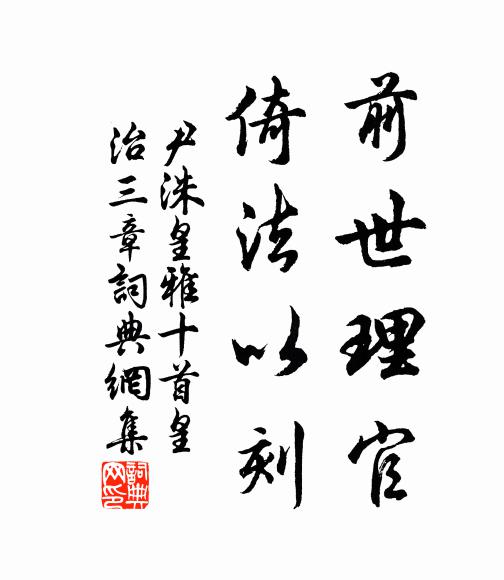 前世理官
倚法以刻
尹洙皇雅十首皇
治三章詞典網集
詞典网印